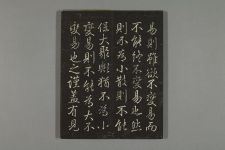 易則雖欲不變易而
不能終不變易也然
則不為小散則不能
住大聚與猶不為小
變易則不能為大不
變易也之謹蓋有見